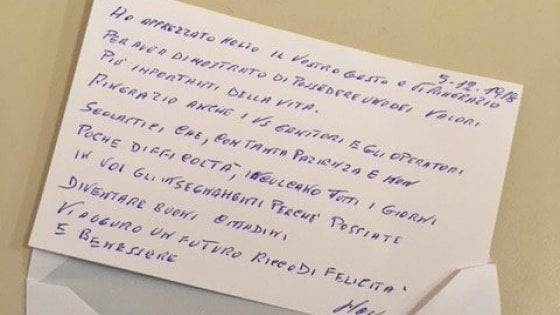 5-12-1918
HO APPREZZATO MOLTO IL VOSTRO GESTO E VI RINGRAZIO
PER AVER DIMOSTRATO DI POSSEDERE UNO DEI VALORI
PIÙ IMPORTANTI DELLA VITA.
RINGRAZIO ANCHE I VS GENITORI E GLI OPERATORI
SCOLASTICI CHE, CON TANTA PAZIENZA E NON
POCHE DIFFICOLTÀ, INCULCANO TUTTI I GIORNI
IN VOI GLI INSEGNAMENTI PERCHÈ POSSIATE
DIVENTARE BUONI CITTADINI
VI AUGURO UN FUTURO RICCO DI FELICITÀ
E BENESSERE